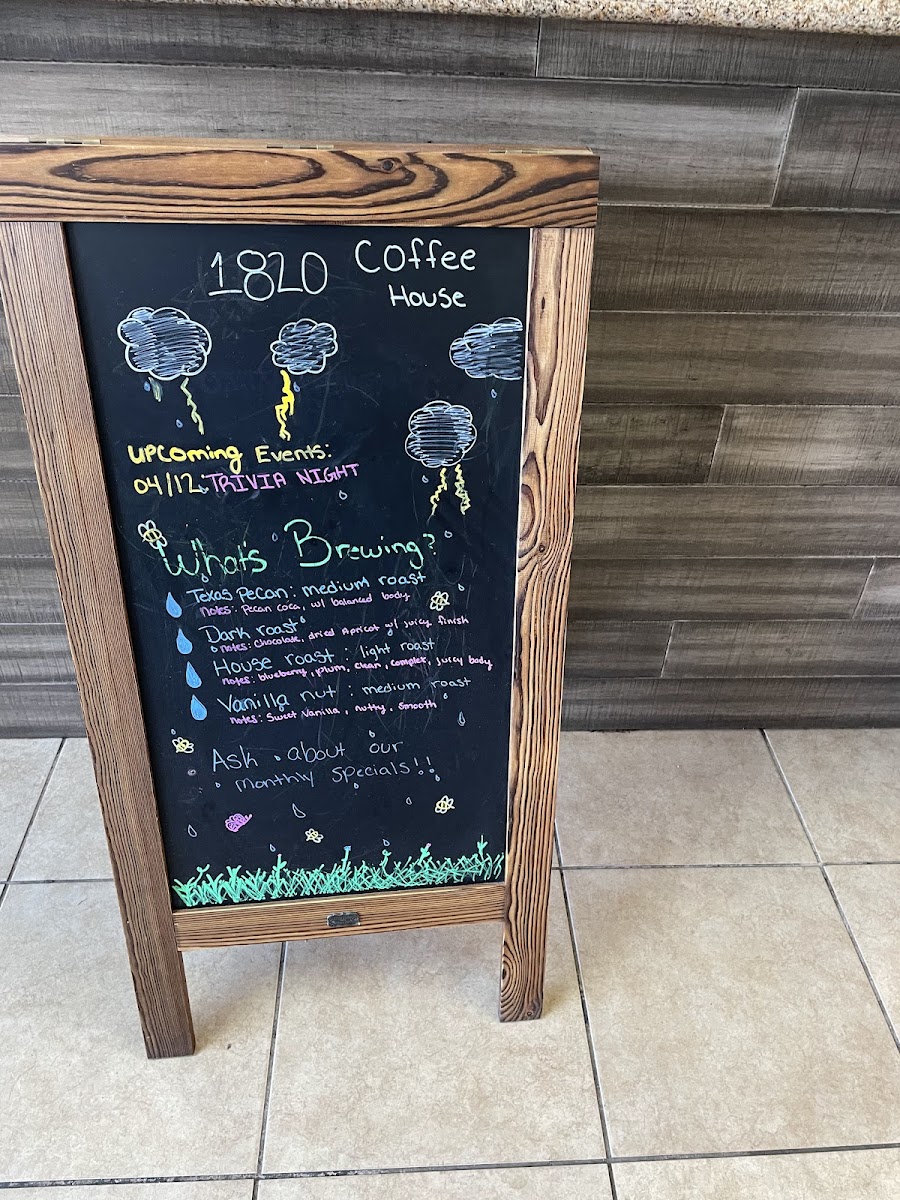 1820 Coffee
House
Upcoming Events:
04/12 TRIVIA NIGHT
What's Brewing?
Texas Pecan: medium roast
notes: Pecan coca, w/ balanced body
Dark roast
notes: Chocolate, dried Apricot w/ juicy finish
House roast: light roast
notes: blueberry, plum, clean, complex, juicy body
Vanilla nut: medium roast
notes: Sweet Vanilla, nutty, Smooth
Ask about our
monthly Specials!!